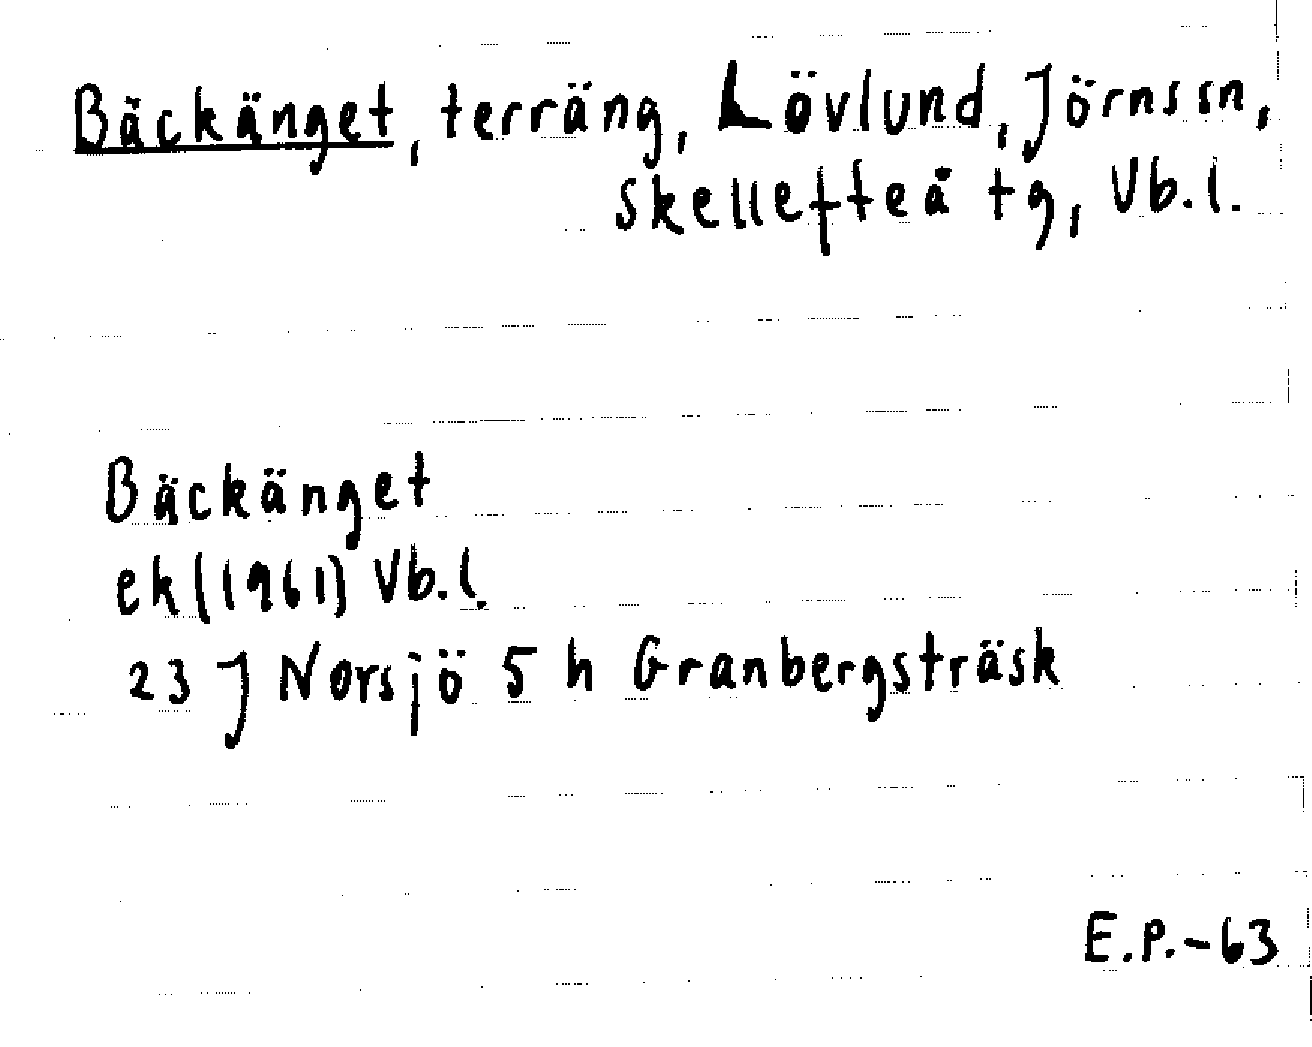 Bäckänget, terräng, Lövlund, Jörns sn,
Skellefteå tg, Vb.l.
Bäckänget
ek (1961) Vb.l.
23 J Norsjö 5 h Granbergsträsk
E.P.-63